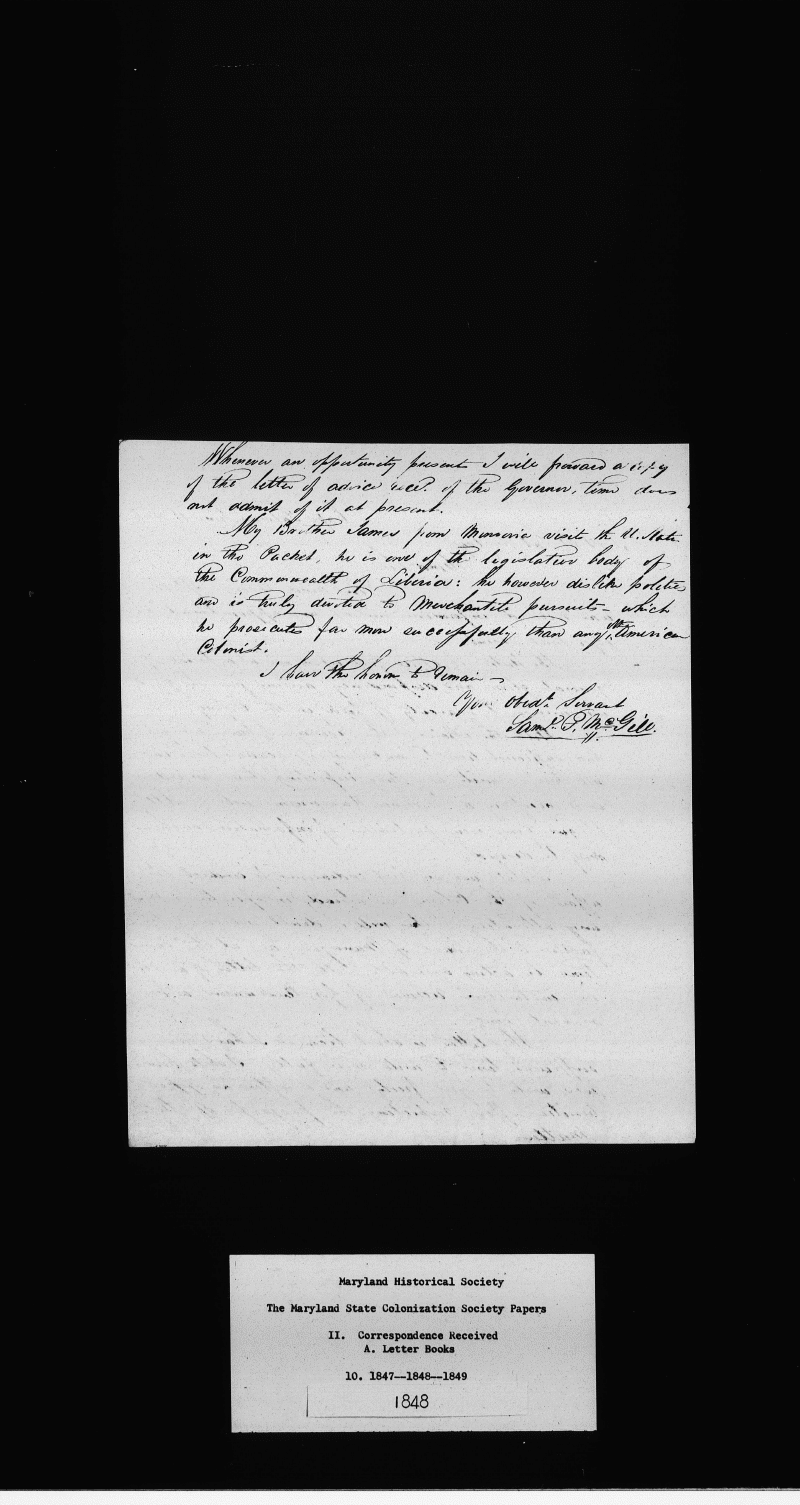 Whenever an opportunity present I will forward a copy
of the letter of advice recd. of the Governor, time does
not admit of it at present.
My Brother James from Monrovia visit the U. State
in the Packet, he is one of the legislative body of
the Commonwealth of Liberia: he however dislike politics
and is truly devoted to Merchantile pursuits – which
he prosecutes far more successfully than any other American
Colonist.
I have the honor to remain –
Your Obedt. Servant
Saml. F. McGill.
Maryland Historical Society
The Maryland State Colonization Society Papers
II. Correspondence Received
A. Letter Books
10. 1847--1848--1849
1848